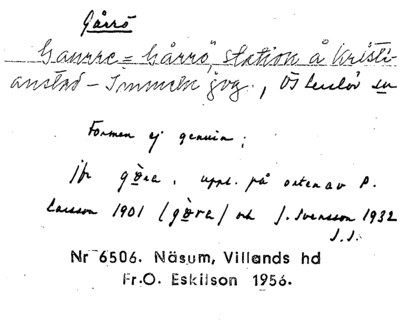 Gårrö
Gaurre = Gårrö", station å Kristi-
anstad – Immeln jvg.,
Formen ej genuin;
jfr uppt. på orten av P.
Larsson 1901 och J. Svensson 1932
J.J.
Nr 6506. Näsum, Villands hd
Fr.O. Eskilson 1956.